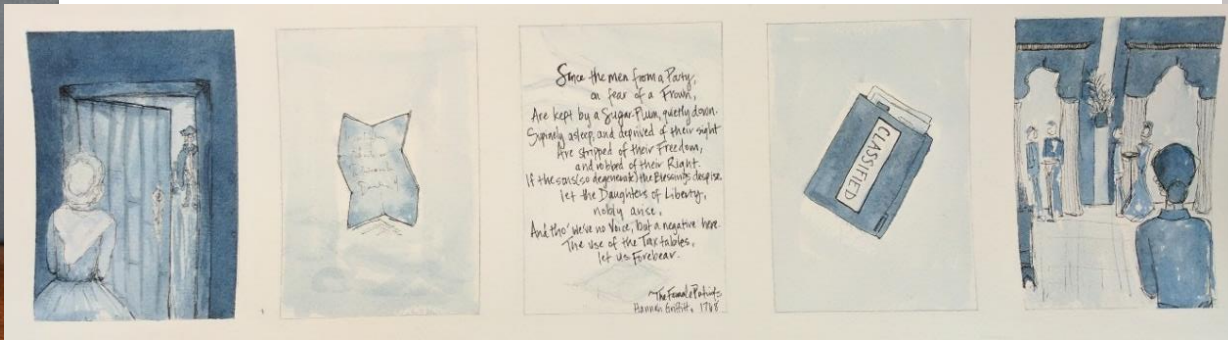 Since the men from a Party,
on fear of a Frown,
Are kept by a Sugar-Plum, quietly down.
Supinely asleep, and deprived of their sight
Are stripped of their Freedom,
and robbed of their Right.
If the sons (so degenerate) the Blessings despise
let the Daughters of Liberty,
nobly arise,
And tho' we've no Voice, but a negative here.
The use of the Taxtables,
let us Forebear.
~The Female Patriots
Hannah Griffitt, 1768
CLASSIFIED